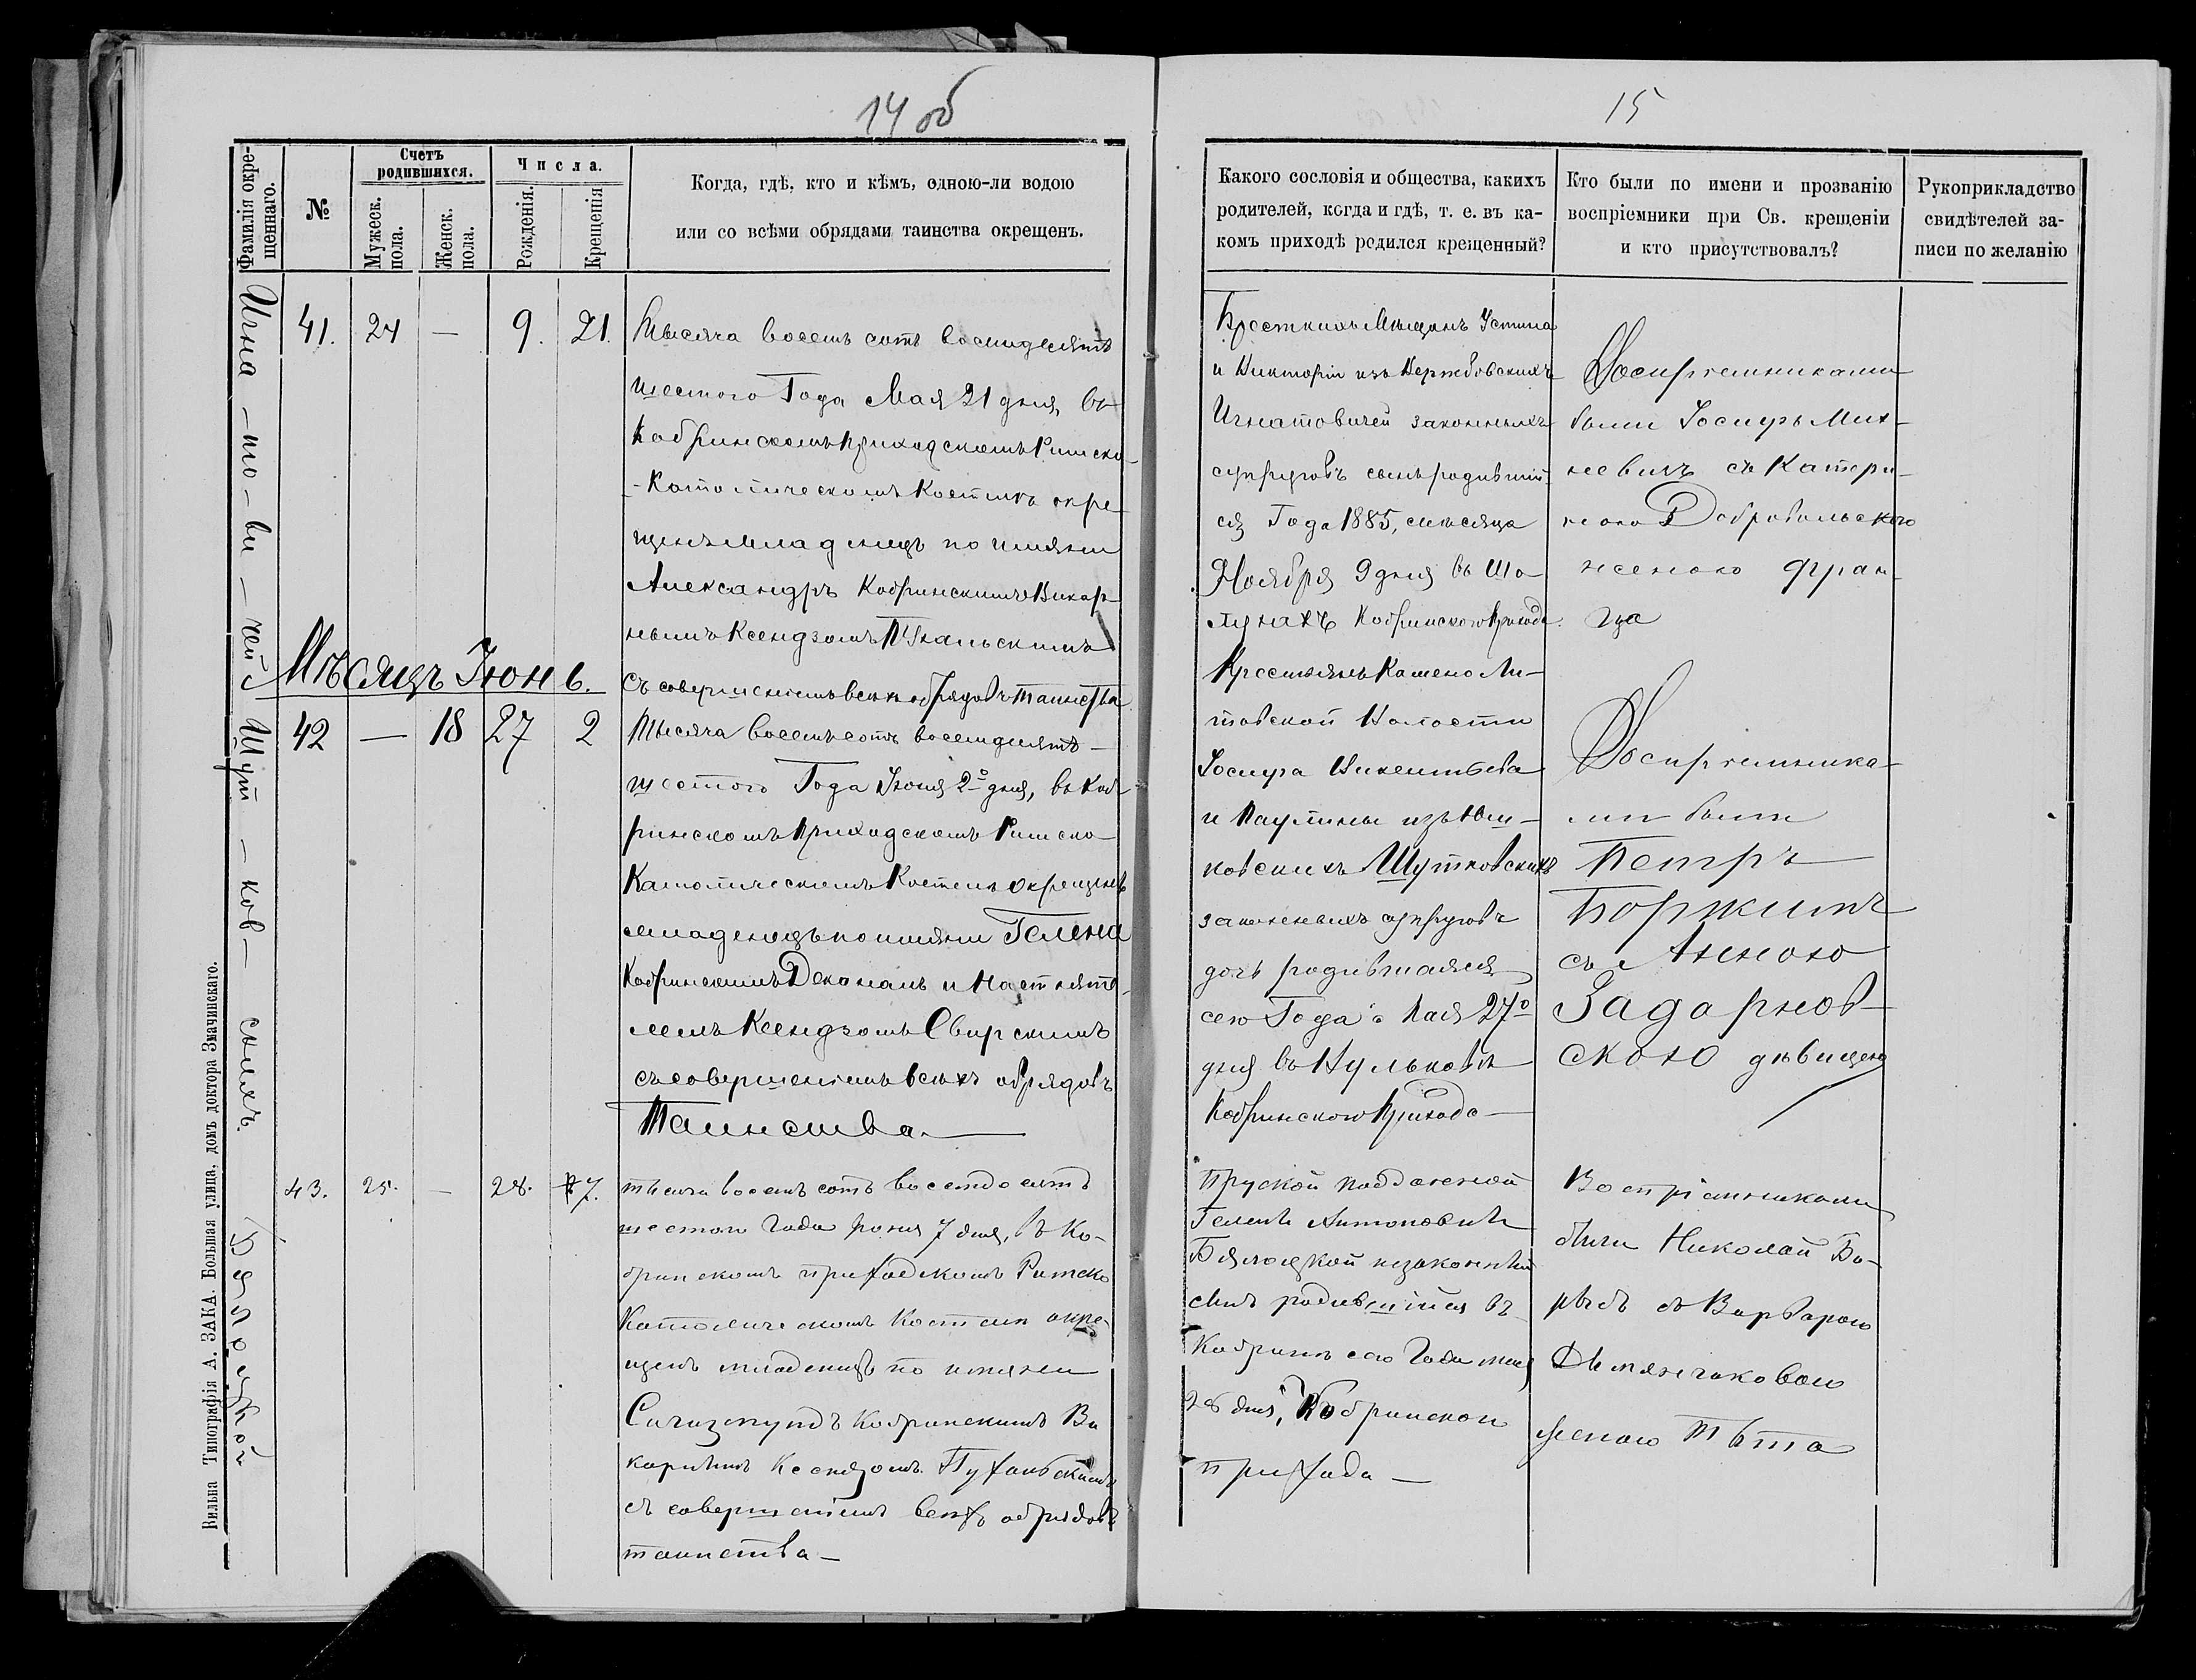 14 об
Фамилія окре-
щеннаго.
№
Счетъ
родившихся.
Мужеск.
пола.
Женск.
пола.
Числа.
Рожденія.
Крещенія
Когда, гдѣ, кто и кѣмъ, одною-ли водою
или со всѣми обрядами таинства окрещенъ.
Игна-то-ви-чей
41. 24 — 9. 21.
Тысяча восемь сотъ восмидесятъ
шестого Года Мая 21 дня, въ
Кобринскомъ Приходскомъ Римско-
-Католическомъ Костелѣ окре-
щенъ младенецъ по имяни
Александръ Кобринскимъ Викар-
нымъ Ксендзомъ
съ совершеніемъ всѣхъ обрядовъ таинства
Мѣсяцъ Іюнь.
Шут-ков-скихъ.
42 — 18 27 2
Тысяча восемь сотъ восемдесятъ-
шестого Года Іюня 2го дня, въ Коб-
ринскомъ Приходскомъ Римско-
Католическомъ Костелѣ окрещенъ
младенецъ по имяни Гелена
Кобринскимъ Деканомъ и Настояте-
лемъ Ксендзомъ Свирскимъ
съ совершеніемъ всѣхъ обрядовъ
Таинства.
Бялоцкой
43. 25. — 28. 7.
тысяча восемь сотъ восемдосятъ
шестого Года Іюня 7 дня, въ Ко-
бринскомъ приходскомъ Римско
Католическомъ Костелѣ окре-
щенъ младенецъ по имяни
Сигизмундъ Кобринскимъ Ви
карнымъ Ксендзомъ Пухальскимъ
съ совершеніемъ всѣхъ обрядовъ
таинства —
Вильна Типографія А. ЗАКА. Большая улица, домъ доктора Змачинскаго.
15
Какого сословія и общества, какихъ
родителей, когда и гдѣ, т. е. въ ка-
комъ приходѣ родился крещенный?
Кто были по имени и прозванію
воспріемники при Св. крещеніи
и кто присутствовалъ?
Рукоприкладство
свидѣтелей за-
писи по желанію
Бресткихъ Мѣщанъ Устина
и Викторіи изъ
Игнатовичей законныхъ
супруговъ сынъ родившій-
ся Года 1885, мѣсяца
Ноября 9 дня въ
Кобринского Прихода.
Воспріемниками
были Іосифъ Мих-
невичъ съ Катери-
ною Добровольского
женою Фран-
ца
Крестьянъ Камено Ли-
товской Волости
Іосифа Викентьева
и Паулины изъ
Шутковскихъ
законныхъ супруговъ
дочь родившаяся
сего Года Мая 27го
дня въ
Кобринского Прихода —
Воспріемника-
ми были
Петръ
съ Анною
Задарнов-
скою дѣвицею
Пруской подданной
Гелены Антоновны
Бялоцкой незаконный
сынъ родившійся въ
Кобринѣ сего Года мая
28 дня, Кобринскои
прихода —
Воспріемниками
были Николай Бо-
съ Варварою
Демянчиковою
женою Тита